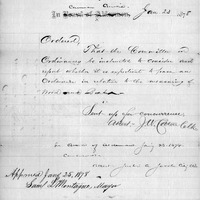 Common Council. Jan 23 1878
In
Ordered,
That the Committee on
Ordinances be instructed to consider and
report whether it is expedient to pass an
Ordinance in relation to the measuring of
Wood and Bark
Sent up for concurrence.
Attest J.W. Clerk
In Board of Aldermen Jan 23. 1878.
Concurred
Attest City Clk
Approved Jany 25, 1878
Saml L Montague, Mayor